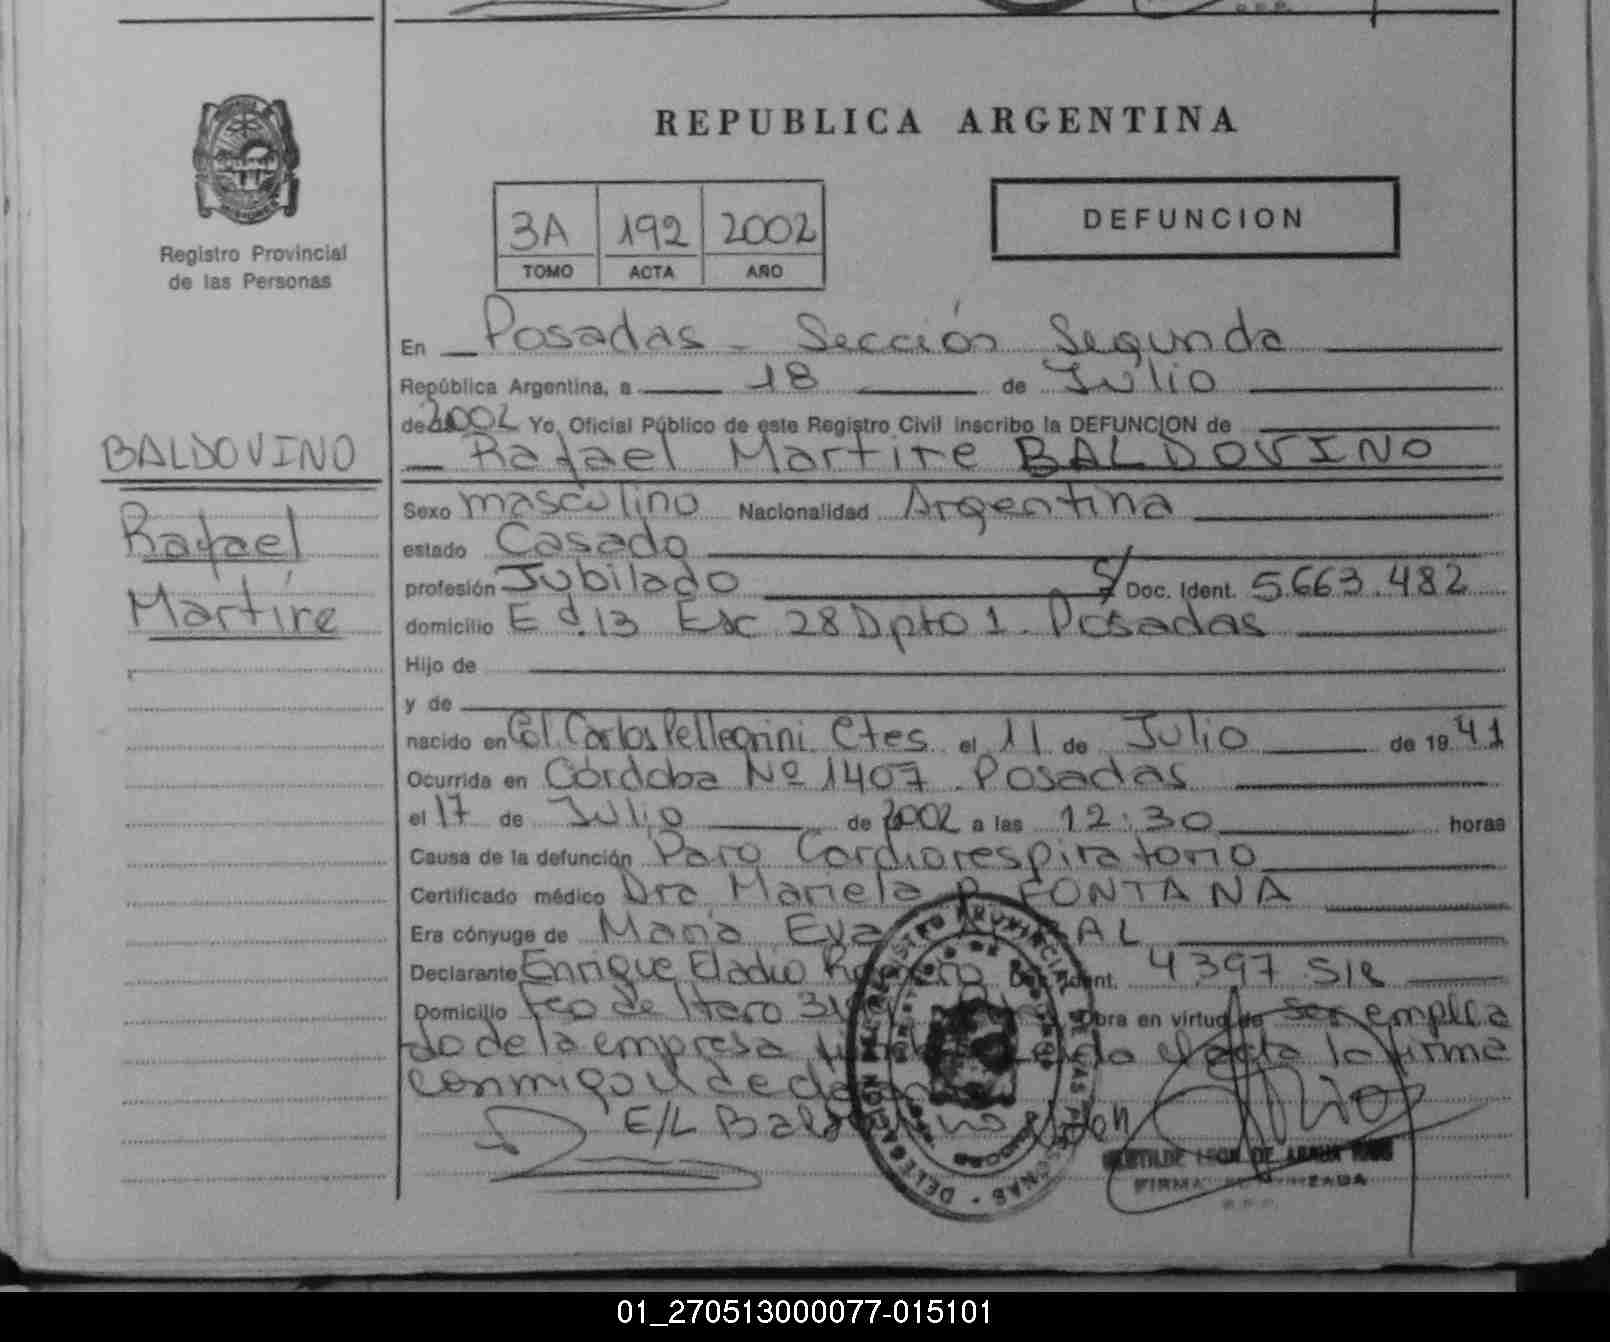 REPUBLICA ARGENTINA
Registro Provincial
de las Personas
3A 192 2002
TOMO ACTA AÑO
DEFUNCION
En Posadas - Sección Segunda
República Argentina, a 18 de Julio
de 2002 Yo, Oficial Público de este Registro Civil inscribo la DEFUNCION de
BALDOVINO
Rafael Martire BALDOVINO
Rafael
Martire
Sexo masculino Nacionalidad Argentina
estado Casado
profesión Jubilado S/ Doc. Ident. 5.663.482
domicilio Ed.13 Esc 28 Dpto 1. Posadas
Hijo de
y de
nacido en Col. Carlos Pellegrini. Ctes. el 11 de Julio de 1941
Ocurrida en Córdoba Nº 1407. Posadas
el 17 de Julio de 2002 a las 12:30 horas
Causa de la defunción Paro Cardiorespiratorio
Certificado médico Dra Mariela P. FONTANA
Era cónyuge de María Eva
Declarante Enrique Eladio Doc. Ident. 4397 518
Domicilio Fco de Haro Obra en virtud de ser emplea
do de la empresa el acta la firma
conmigo el
E/L Baldovino
FIRMA AUTORIZADA
01_270513000077-015101